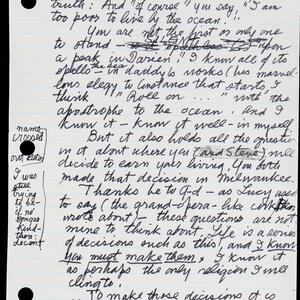 truth: And "of course" you say, "I am
too poor to live by the ocean!"
You are not the first or only one
to stand upon
a peak in Darien! I know all of its
spells in daddy's works (his marvel-
ous elegy to instance that starts, I
think "Roll on ... " with the
apostrophe to the ocean. And I
know it - know it well - in myself.
But it also holds all the questions
in it about where you (and Steve) will
decide to earn your living. You both
made that decision in Milwaukee.
Thanks be to G-d - as Lucy used
to say (the grand-opera-like cook
wrote about) - these questions are not
mine to think about. Life is a series
of decisions such as this, and I know
you must make them. I know it
as perhaps the only religion I will
cling to!
To make those decisions it is
name
crossed
out
I was
still
trying
to be -
if no
longer
kind -
then:
decent